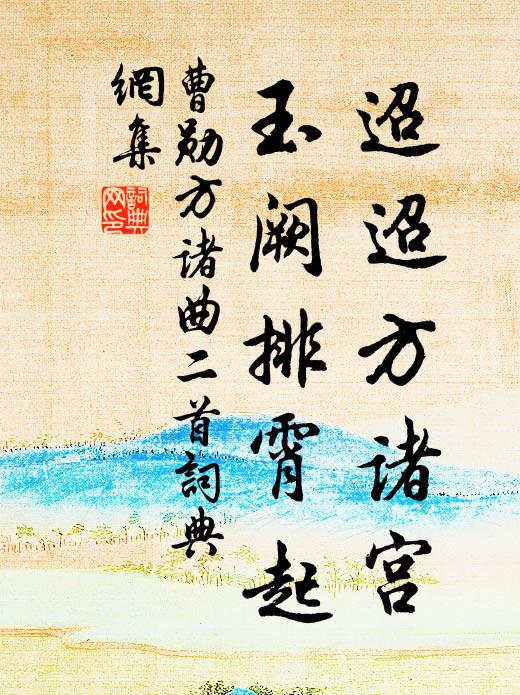 迢迢方诸宫
玉阙排霄起
曹勋方诸曲二首詞典
網集
詞典网印